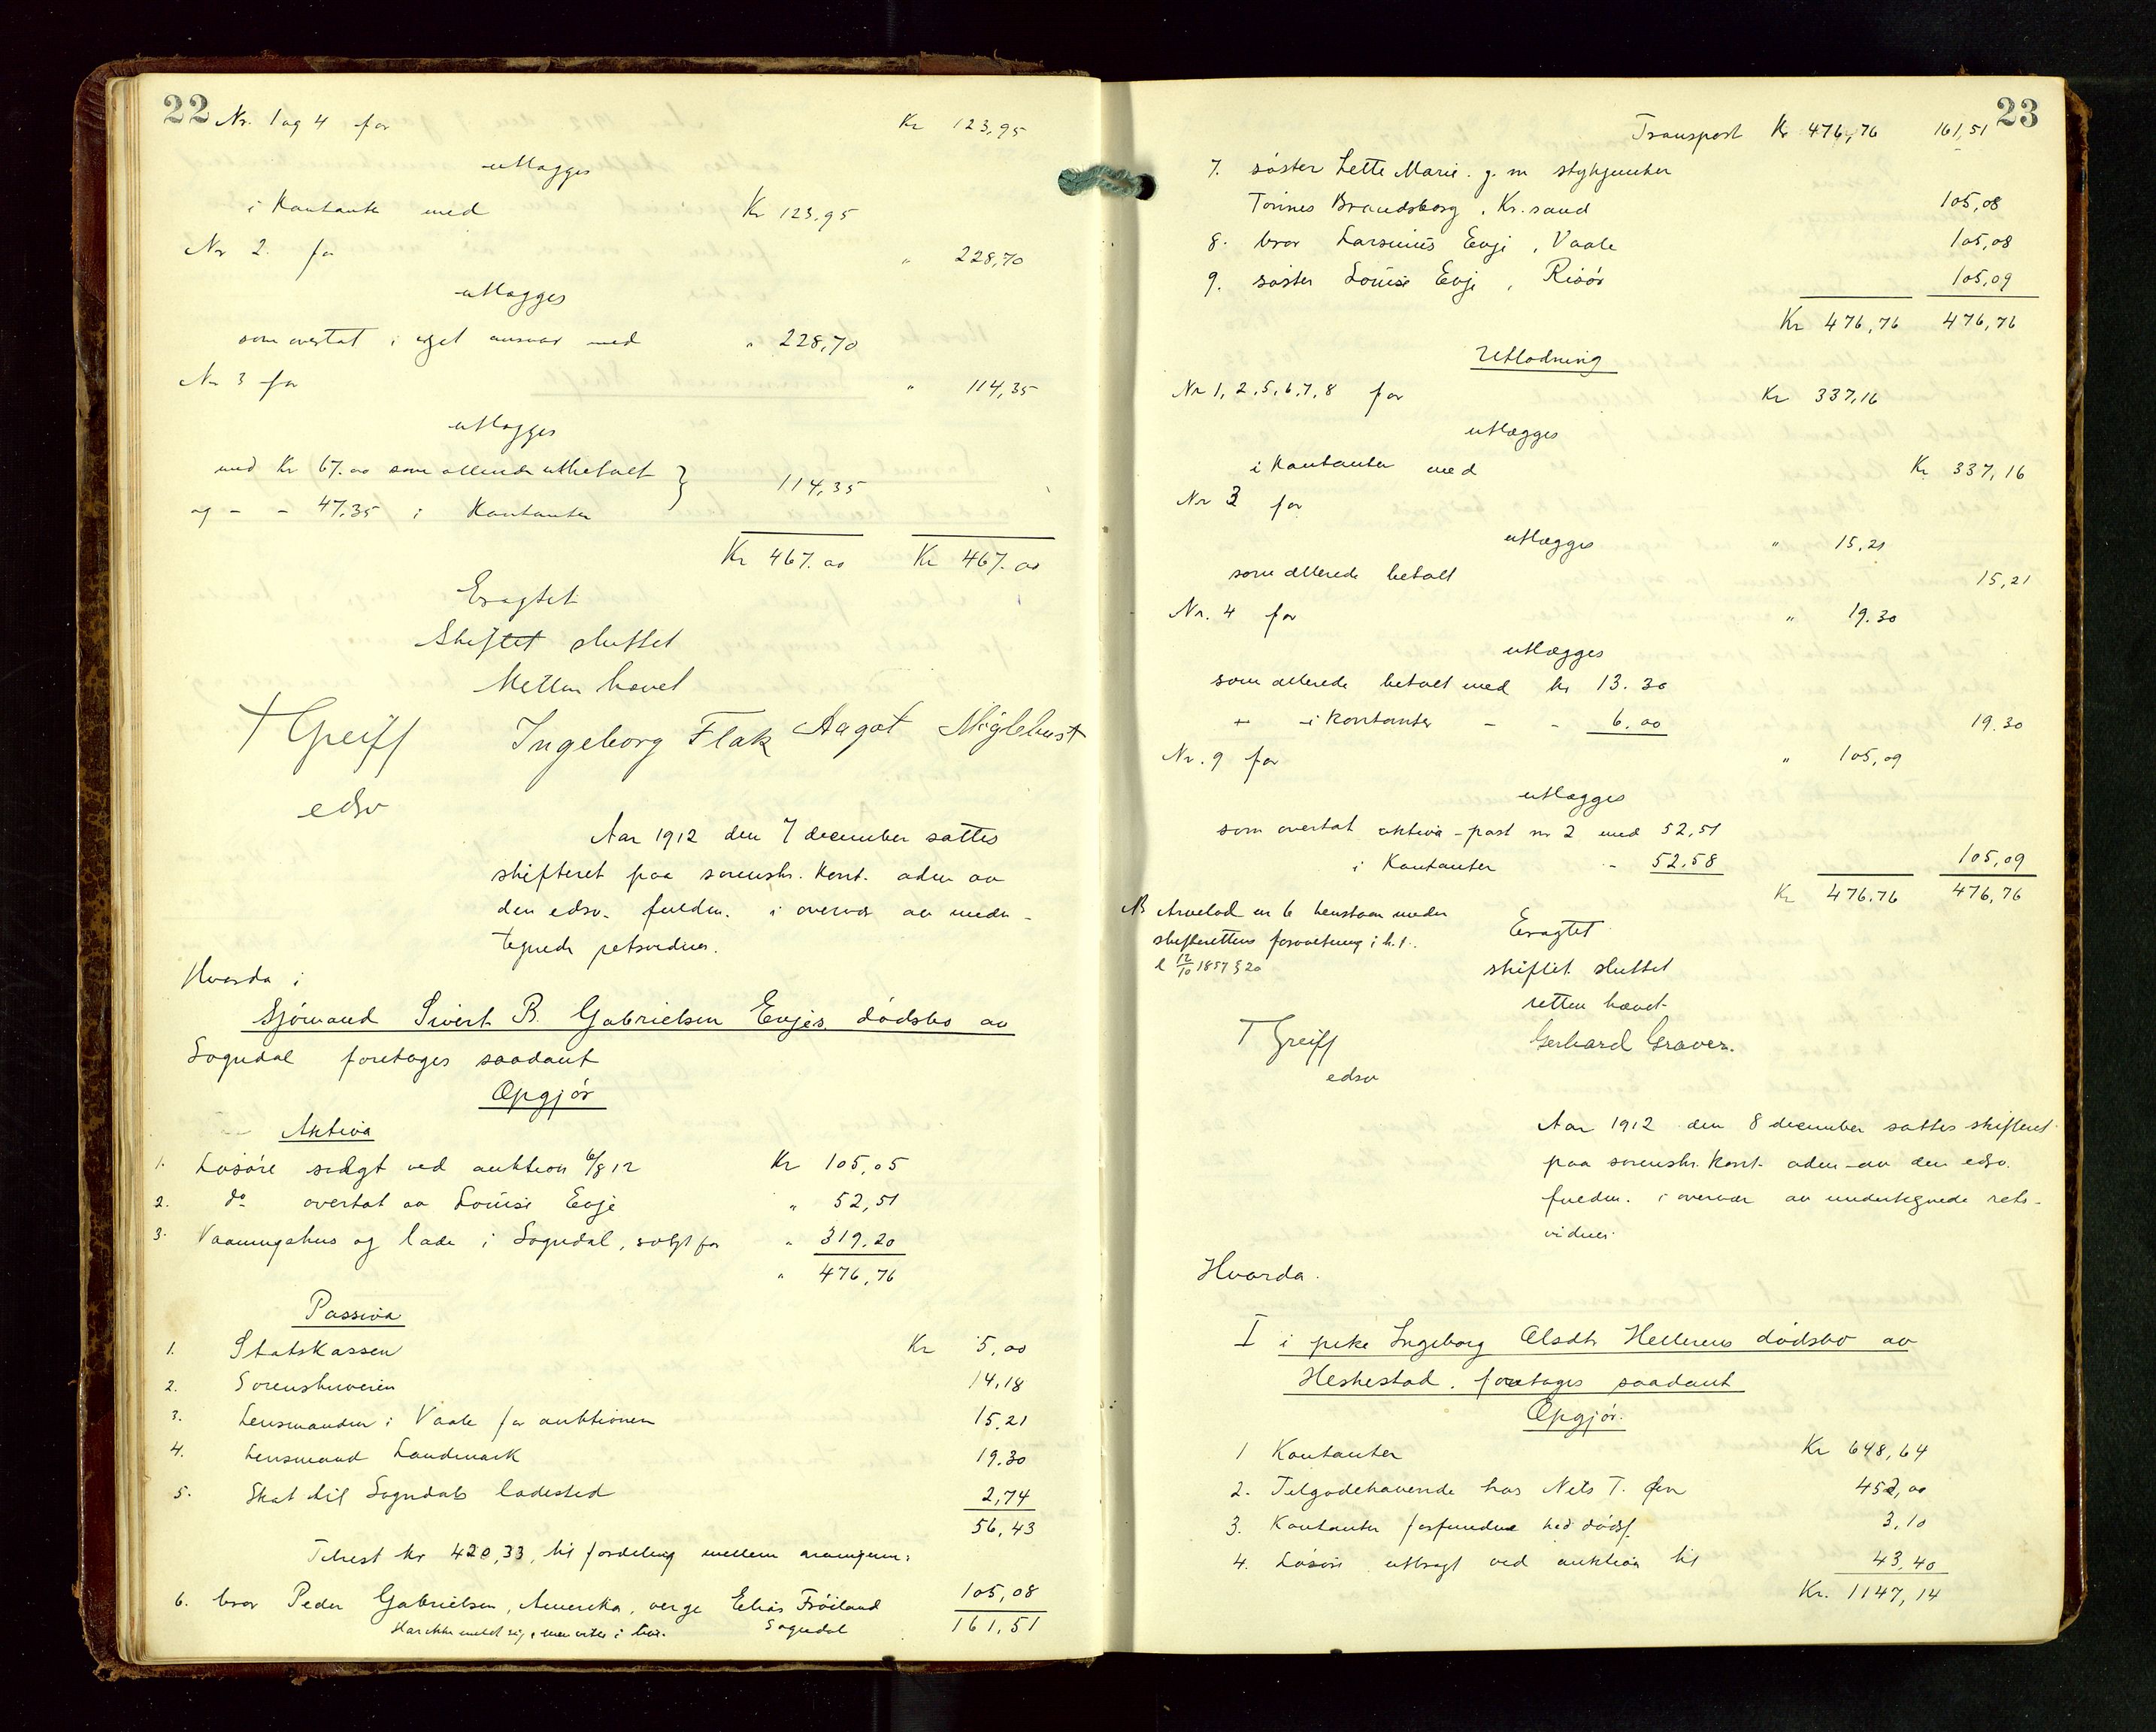 22
Nr. 1 og 4 for Kr 123,95
utlægges
i Kontanter med Kr 123,95
Nr 2. for " 228,70
utlægges
som overtat i eget ansvar med " 228,70
Nr 3 for " 114,35
utlægges
med Kr 67.00 som allerede utbetalt
og - - 47.35 i Kontanter } 114,35
Kr 467.00 Kr 467.00
Eragtet
Skiftet sluttet
Retten hævet
T Greiff Ingeborg Flak Aagot
edsv
Aar 1912 den 7 december sattes
skifteret paa sorenskr. kont. aden av
den edsv. fuldm. i overvær av under-
tegnede retsvidner.
Hvorda i
Sjömand Sivert B. Gabrielsen Evjes dödsbo av
Sogndal foretoges saadant
Opgjör
Aktiva
1. Lösöre solgt ved auktion 6/8 12 Kr 105,05
2. do overtat av Louise Evje " 52,51
3. Vaaningshus og lade i Sogndal, solgt for " 319.20
" 476,76
Passiva
1. Statskassen Kr 5,00
2. Sorenskriveren 14,18
3. Lensmanden i Vaale for auktionen 15.21
4. Lensmand Landmark 19.30
5. Skat til Sogndals ladested 2,74
56,43
Tilrest kr 420,33, til fordeling mellem arvingerne:
6. bror Peder Gabrielsen, Amerika, verge Elias Fröiland 105,08
Har ikke meldt sig, men i live. Sogndal 161,51
23
Transport Kr 476,76 161,51
7. söster Lette Marie g. m. stykjunker
Tönnes Brandsborg, Kr.sand 105,08
8. bror Larsinius Evje, Vaale 105,08
9. söster Louise Evje, Risör 105,09
Kr 476,76 476,76
Utlodning
Nr 1, 2, 5, 6, 7, 8 for Kr 337,16
utlægges
i Kontanter med Kr 337,16
Nr 3 for
utlægges " 15,21
som allerede betalt 15,21
Nr. 4 for " 19.30
utlægges
som allerede betalt med kr 13.30
+ i kontanter - - 6.00 19.30
Nr. 9 for " 105,09
utlægges
som overtat aktiva-post nr 2 med 52,51
i Kontanter - 52.58 105,09
Kr 476.76 476,76
NB Arvelod nr 6 henstaar under
skifterettens forvaltning i h. t.
l 12/10 1857 § 20
Eragtet
skiftet sluttet
retten hævet
T Greiff Gerhard Graver.
edsv
Aar 1912 den 8 december sattes skifteret
paa sorenskr. kont. aden av den edsv.
fuldm. i overvær av undertegnede rets-
vidner.
Hvorda.
I i pike Ingeborg Olsdtr Hellerens dödsbo av
Heskestad. foretoges saadant
Opgjör.
1 Kontanter Kr 648,64
2. Tilgodehavende hos Nils T. 452,00
3. Kontanter forfundne ved dödsf. 3,10
4. Lösöre utbragt ved auktion til 43,40
Kr. 1147,14